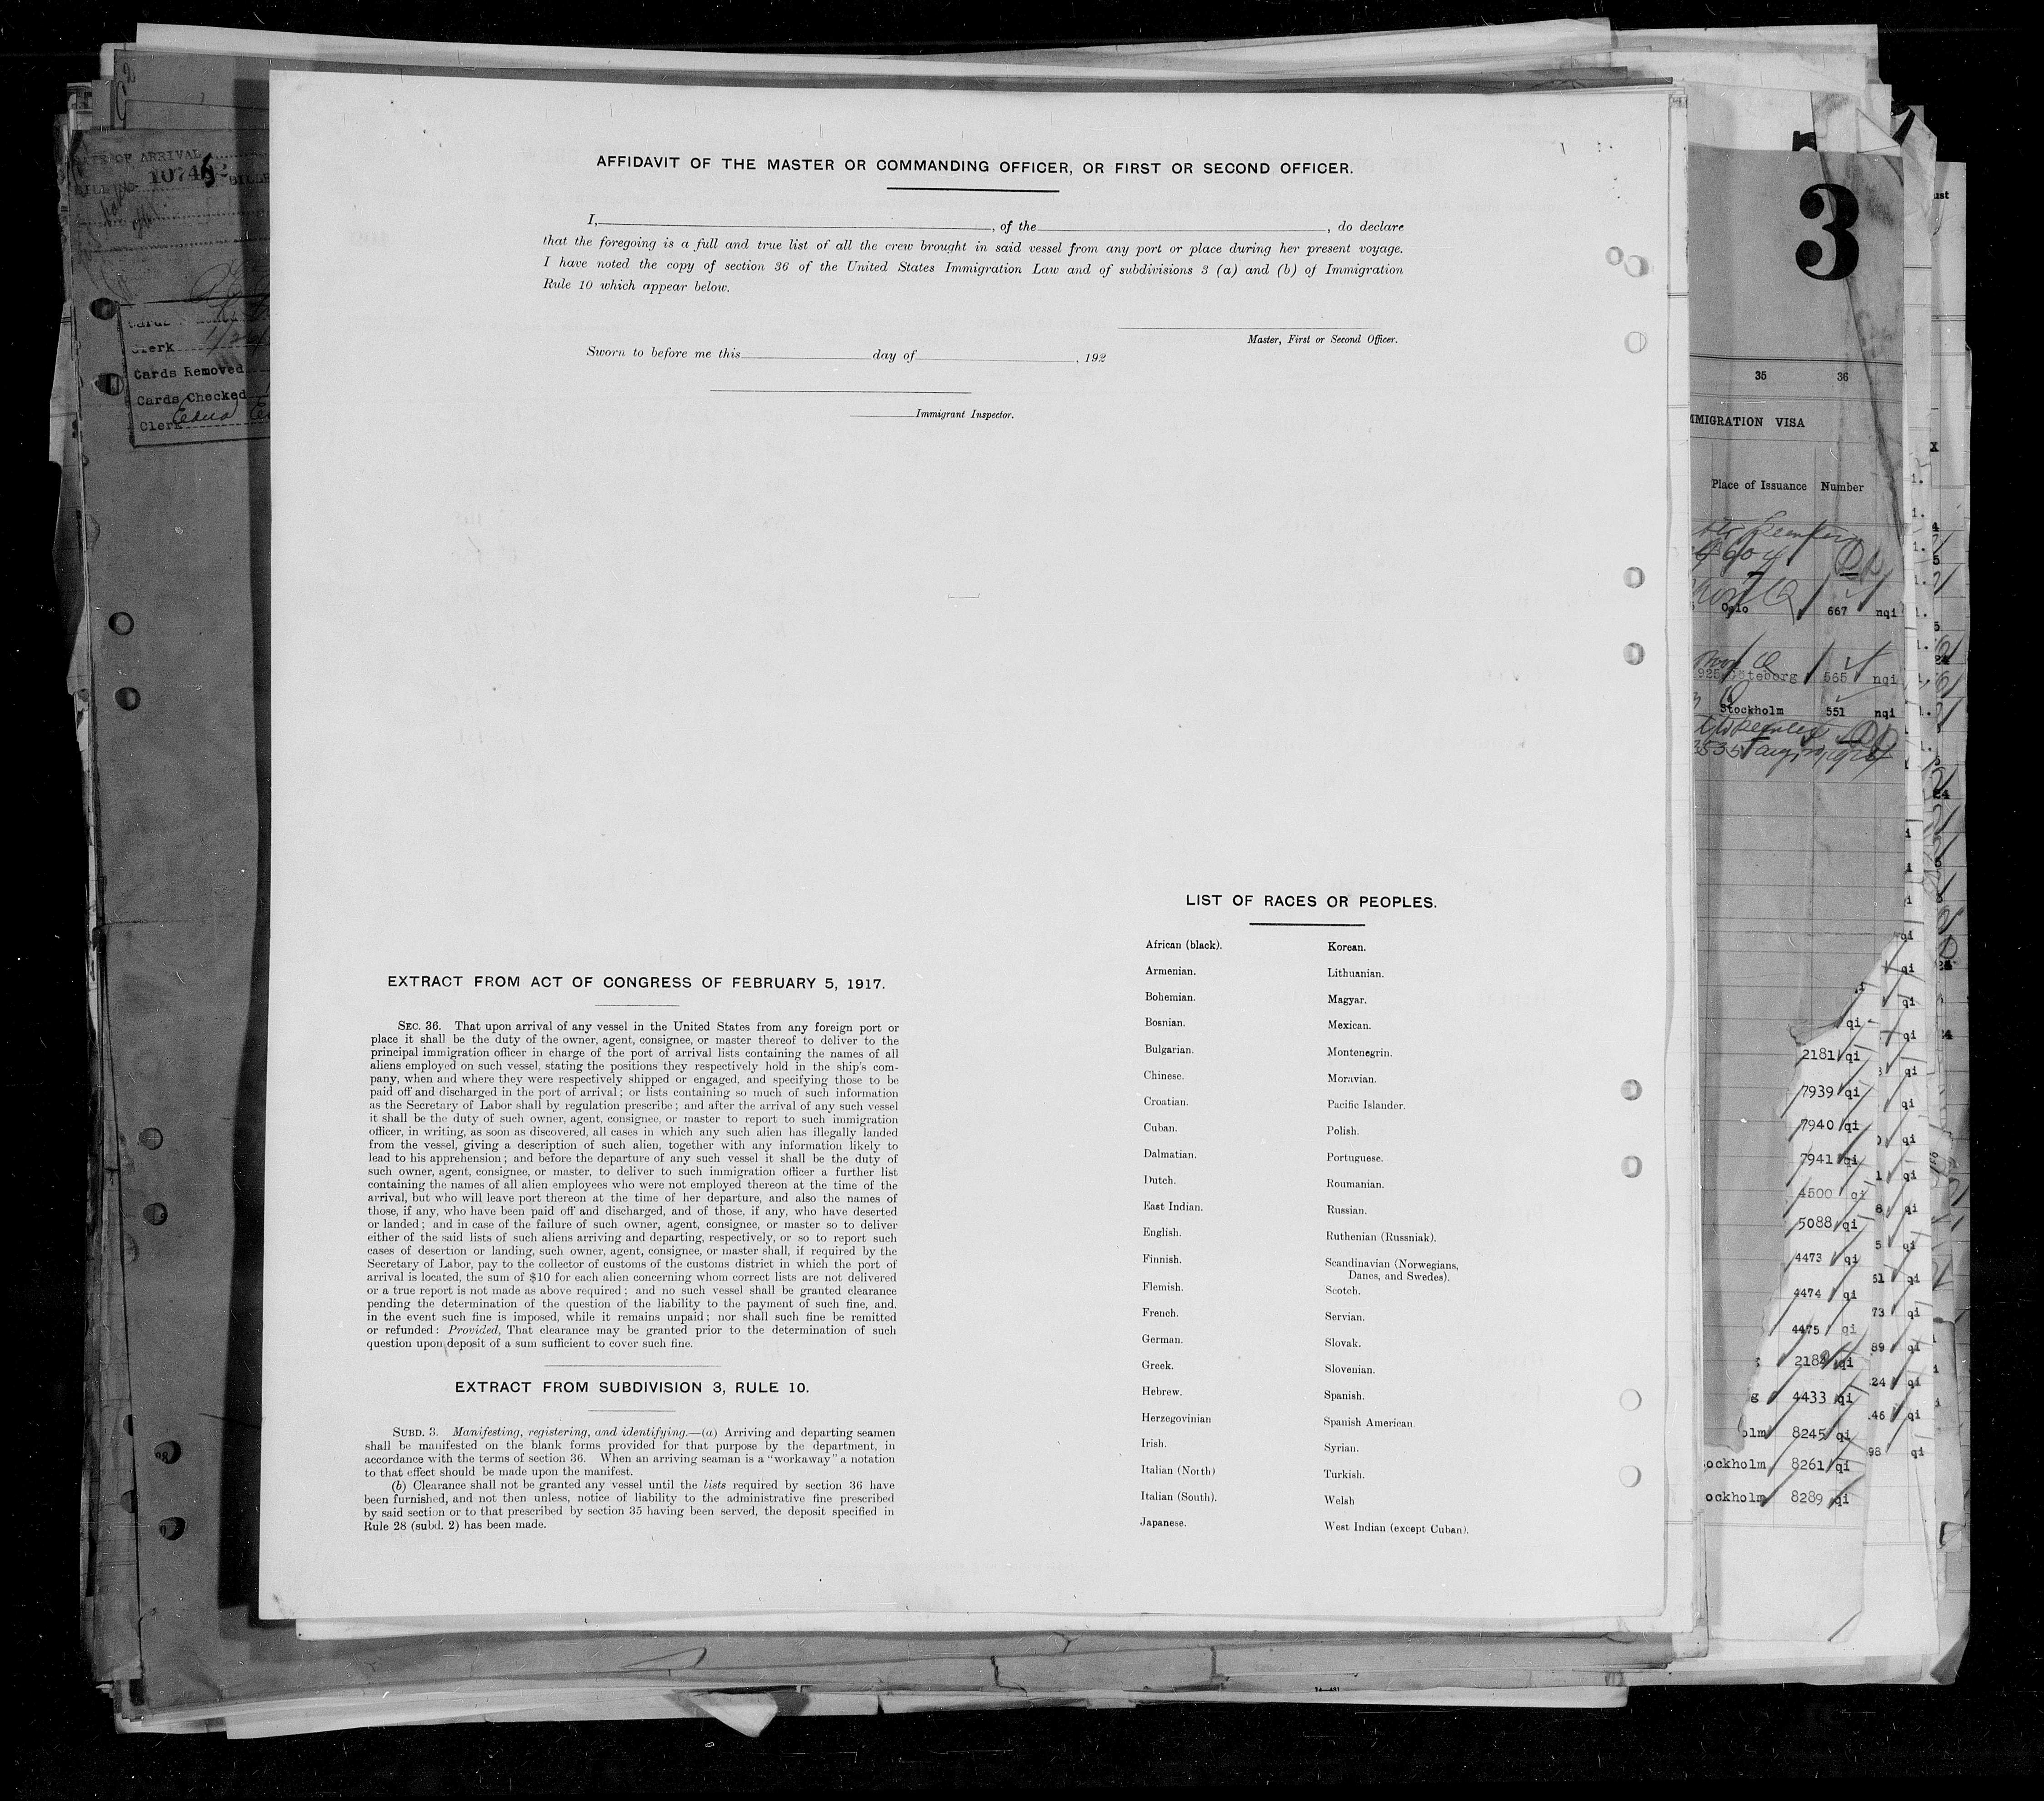 AFFIDAVIT OF THE MASTER OR COMMANDING OFFICER, OR FIRST OR SECOND OFFICER.
I, , of the , do declare
that the foregoing is a full and true list of all the crew brought in said vessel from any port or place during her present voyage.
I have noted the copy of section 36 of the United States Immigration Law and of subdivisions 3 (a) and (b) of Immigration
Rule 10 which appear below.
Master, First or Second Officer.
Sworn to before me this day of , 192
Immigrant Inspector.
EXTRACT FROM ACT OF CONGRESS OF FEBRUARY 5, 1917.
SEC. 36. That upon arrival of any vessel in the United States from any foreign port or
place it shall be the duty of the owner, agent, consignee, or master thereof to deliver to the
principal immigration officer in charge of the port of arrival lists containing the names of all
aliens employed on such vessel, stating the positions they respectively hold in the ship's com-
pany, when and where they were respectively shipped or engaged, and specifying those to be
paid off and discharged in the port of arrival; or lists containing so much of such information
as the Secretary of Labor shall by regulation prescribe; and after the arrival of any such vessel
it shall be the duty of such owner, agent, consignee, or master to report to such immigration
officer, in writing, as soon as discovered, all cases in which any such alien has illegally landed
from the vessel, giving a description of such alien, together with any information likely to
lead to his apprehension; and before the departure of any such vessel it shall be the duty of
such owner, agent, consignee, or master, to deliver to such immigration officer a further list
containing the names of all alien employees who were not employed thereon at the time of the
arrival, but who will leave port thereon at the time of her departure, and also the names of
those, if any, who have been paid off and discharged, and of those, if any, who have deserted
or landed; and in case of the failure of such owner, agent, consignee, or master so to deliver
either of the said lists of such aliens arriving and departing, respectively, or so to report such
cases of desertion or landing, such owner, agent, consignee, or master shall, if required by the
Secretary of Labor, pay to the collector of customs of the customs district in which the port of
arrival is located, the sum of $10 for each alien concerning whom correct lists are not delivered
or a true report is not made as above required; and no such vessel shall be granted clearance
pending the determination of the question of the liability to the payment of such fine, and,
in the event such fine is imposed, while it remains unpaid; nor shall such fine be remitted
or refunded: Provided, That clearance may be granted prior to the determination of such
question upon deposit of a sum sufficient to cover such fine.
EXTRACT FROM SUBDIVISION 3, RULE 10.
SUBD. 3. Manifesting, registering, and identifying.—(a) Arriving and departing seamen
shall be manifested on the blank forms provided for that purpose by the department, in
accordance with the terms of section 36. When an arriving seaman is a "workaway" a notation
to that effect should be made upon the manifest.
(b) Clearance shall not be granted any vessel until the lists required by section 36 have
been furnished, and not then unless, notice of liability to the administrative fine prescribed
by said section or to that prescribed by section 35 having been served, the deposit specified in
Rule 28 (subd. 2) has been made.
LIST OF RACES OR PEOPLES.
African (black).
Armenian.
Bohemian.
Bosnian.
Bulgarian.
Chinese.
Croatian.
Cuban.
Dalmatian.
Dutch.
East Indian.
English.
Finnish.
Flemish.
French.
German.
Greek.
Hebrew.
Herzegovinian
Irish.
Italian (North)
Italian (South).
Japanese.
Korean.
Lithuanian.
Magyar.
Mexican.
Montenegrin.
Moravian.
Pacific Islander.
Polish.
Portuguese.
Roumanian.
Russian.
Ruthenian (Russniak).
Scandinavian (Norwegians,
Danes, and Swedes).
Scotch.
Servian.
Slovak.
Slovenian.
Spanish.
Spanish American.
Syrian.
Turkish.
Welsh
West Indian (except Cuban).
OF ARRIVAL
Clerk
Cards Removed
Cards Checked
Clerk Edna
3
35 36
IMMIGRATION VISA
Place of Issuance Number
Oslo 667 nqi
925 Göteborg 565 nqi
Stockholm 551 nqi
qi
2181 qi
7939 qi
7940 qi
7941 qi
4500 qi
5088 qi
4473 qi
4474 qi
4475 qi
qi
4433 qi
olm 8245 qi
ockholm 8261 qi
ockholm 8289 qi